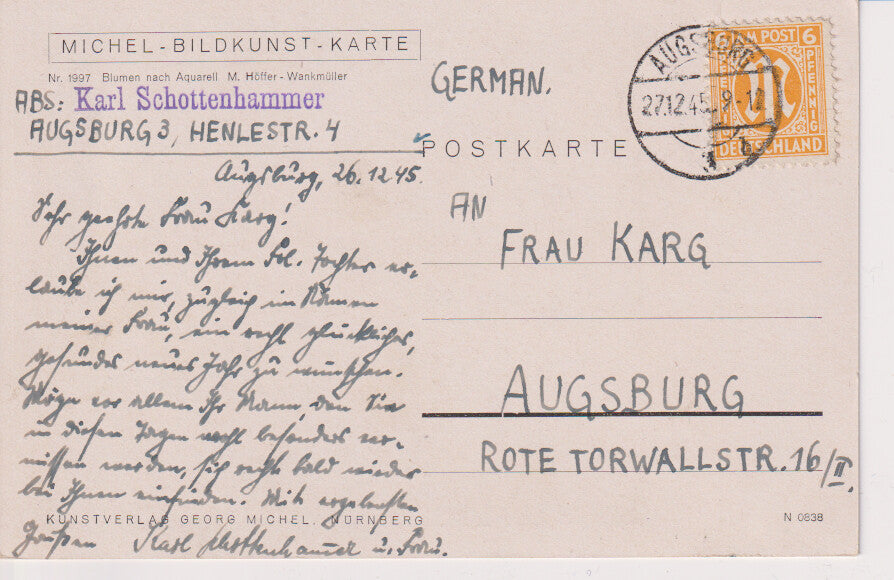 MICHEL-BILDKUNST-KARTE
Nr. 1997 Blumen nach Aquarell M. Höffer-Wankmüller
ABS: Karl Schottenhammer
AUGSBURG 3, HENLESTR. 4
Augsburg, 26.12.45.
Sehr geehrte Frau Karg!
Ihnen und Ihrem Frl. Tochter er-
laube ich mir, zugleich im Namen
meiner Frau, ein recht glückliches,
gesundes neues Jahr zu wünschen.
Möge vor allem Ihr Mann, den Sie
in diesen Tagen wohl besonders ver-
missen werden, sich recht bald wieder
bei Ihnen einfinden. Mit ergebensten
KUNSTVERLAG GEORG MICHEL, NÜRNBERG
Grüßen Karl Schottenhammer u. Frau.
GERMAN.
POSTKARTE
AUGSBURG
27.12.45. 9-12
3 b
6 AM POST 6
PFENNIG
DEUTSCHLAND
AN
FRAU KARG
AUGSBURG
ROTE TORWALLSTR. 16/II.
N 0838